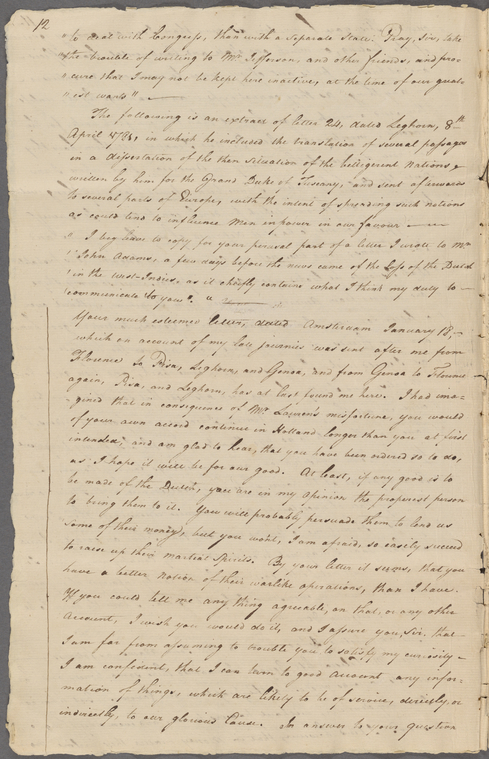 12
to treat with Congress, than with a separate State. Pray, Sir, take
the trouble of writing to Mr. Jefferson, and other friends, and pro=
cure that I may not be kept here inactive, at the time of our great=
est wants"
The following is an extract of letter 24, dated Leghorn, 8th
April 1781, in which he inclosed the translation of several passages
in a dissertation of the then situation of the beligerent Nations,
written by him for the Grand Duke of Tuscany, and sent
to several parts of Europe, with the intent of spreading such notions
as could tend to influence Men in power in our favour
" I beg leave to copy for your perusal part of a letter I wrote to Mr.
" John Adams, a few days before the news came of the Loss of the Dutch
" in the West-Indies, as it chiefly contains what I think my duty to
" communicate to you. "
Your much esteemed letter, dated Amsterdam January 18,
which on account of my late journies was sent after me from
Florence to Pisa, Leghorn, and Genoa, and from Genoa to Florence
again, Pisa, and Leghorn, has at last found me here. I had ima=
gined that in consequence of Mr. Lauren's misfortune, you would
of your own accord continue in Holland longer than you at first
intended, and am glad to hear, that you have been ordered so to do,
as I hope it will be for our good. At least, if any good is to
be made of the Dutch, you are in my opinion the properest person
to bring them to it. You will probably persuade them to lend us
some of their money, but you wont, I am afraid, so easily succeed
to raise up their martial Spirits. By your letter it seems, that you
have a better notion of their warlike operations, than I have.
If you could tell me any thing agreeable, on that, or any other
Account, I wish you would do it, and I assure you, Sir, that
I am far from assuming to trouble you to satisfy my curiosity
I am confident, that I can turn to good account any infor=
mation of things, which are likely to be of service, directly, or
indirectly, to our glorious Cause. In answer to your Question